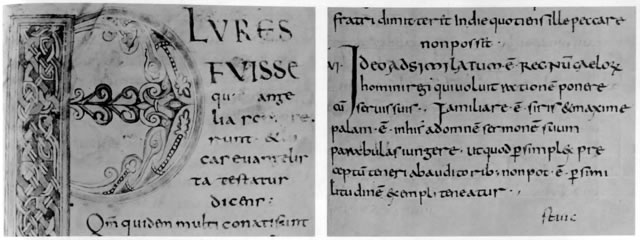 PLVRES
FVISSE
qui
lia
runt &
ta testatur
dicens:
Qm quidem multi conati sunt
fratri dimiterit In die quotiens ille peccare
non possit.
VI. Ideo adsimilatum ē regnū caeloꝝ
homini regi qui voluit rationem ponere
cū servis suis. Familiare ē siris & maxime
ad omnem sermonem suum
parabulas iungere. ut quod simplex prae
ceptum teneri ab auditorib; non pot ē simi
litudinem exempli teneatur.